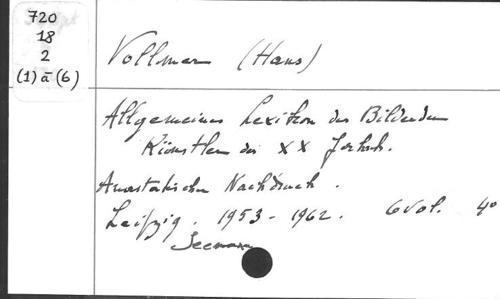 720
18
2
(1) à (6)
Vollmer (Hans)
Allgemeines Lexikon der Bildenden
Künstler des XX Jahrh.
Anastatischer Nachdruck.
Leipzig. 1953-1962. 6 vol. 4°
Seemann